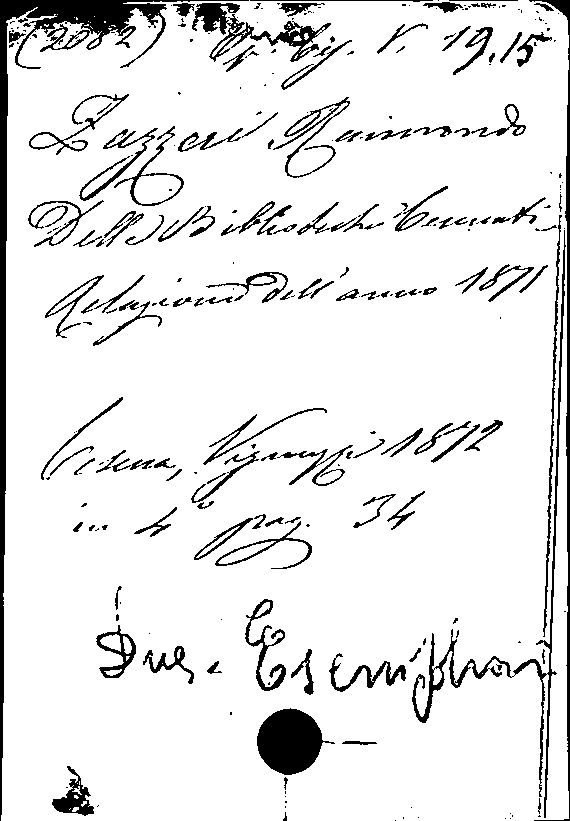 (2082) Op. Cis. V. 19.15
Zazzeri Raimondo
Delle Biblioteche Cesenati
Relazione dell'anno 1871
Cesena, Vignuzzi 1872
in 4° pag. 34
Due Esemplari